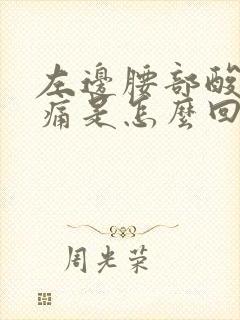 左邊腰部酸
痛是怎麼回
周光荣